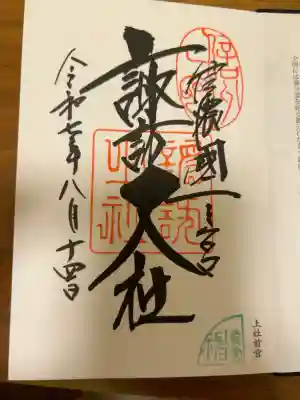 信濃國一之宮
諏訪大社
令和七年八月十四日
上社前宮